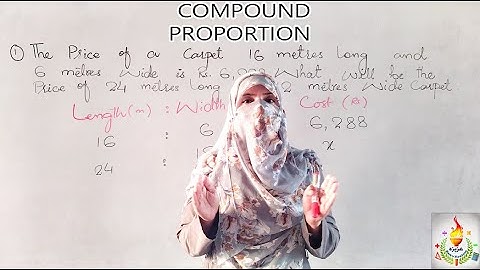 COMPOUND
PROPORTION
① The Price of a Carpet 16 metres long and
6 metres wide is Rs. 6, What will be the
Price of 24 metres long 2 metres wide Carpet.
Length(m) : Width Cost (Rs)
16 : 6 6,288
24 : 1 x